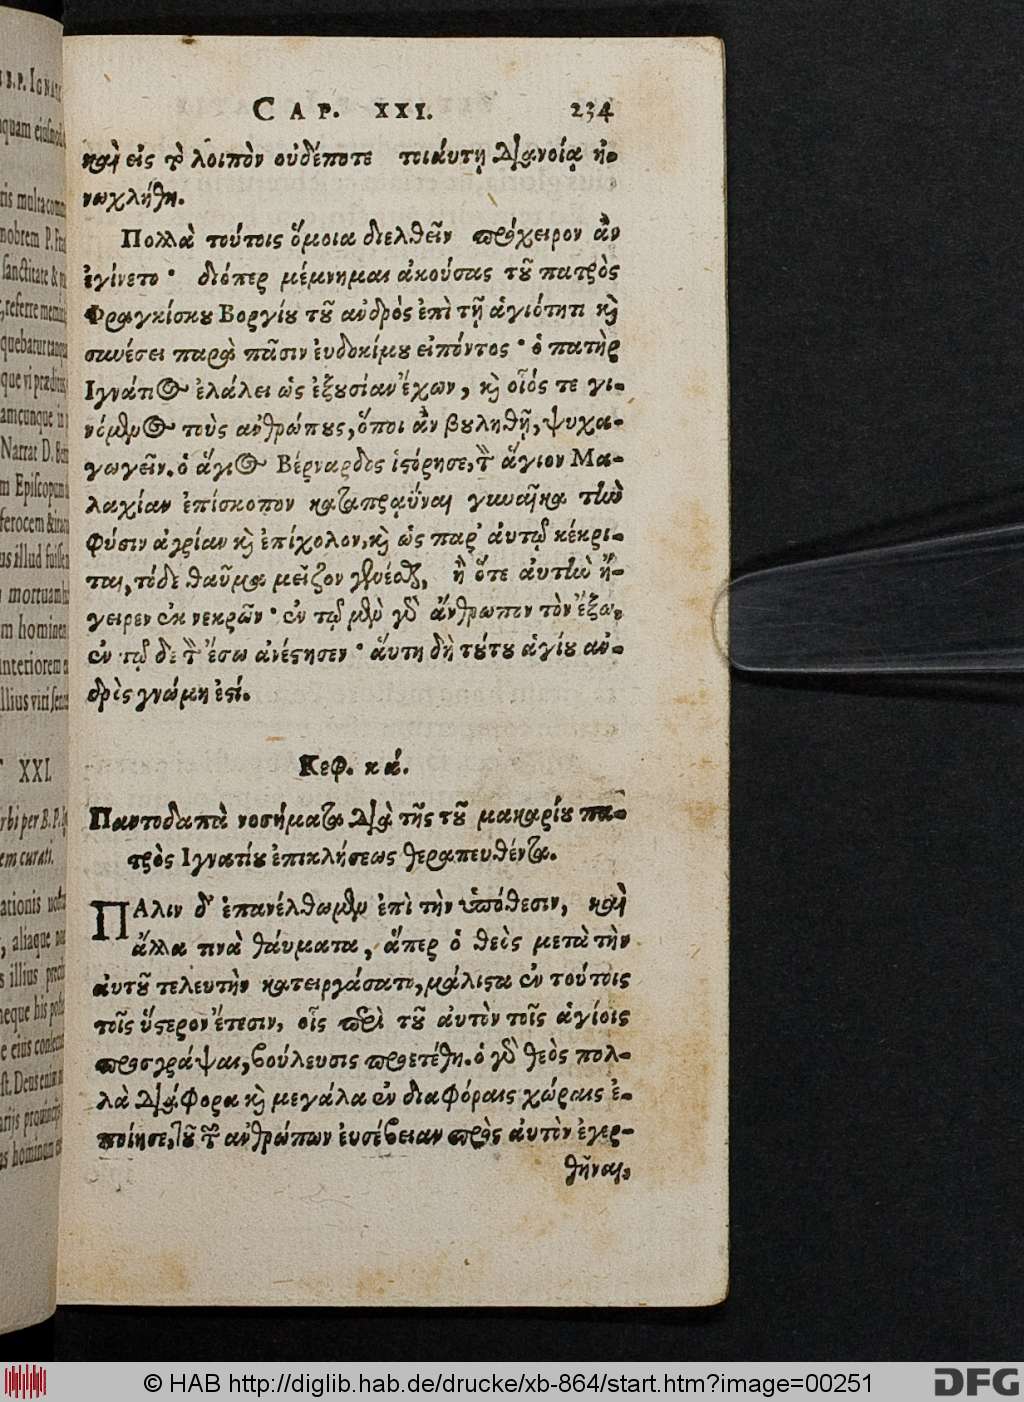 B.P. IGNAT
quam eiusmod
ris multa comm
nobrem P. Fra
sanctitate &
referre memin
quebatur tanqua
que vi præditus
amcunque in
Narrat D. Bern
m Episcopum
ferocem & ira
us illud fuisse
mortuam
m hominem
interiorem
illius viri senten
XXI.
rbi per B. P. Ig
em curati.
ationis
, aliaque
s illius preci
neque his po
e eius con
st. Deus enim
arijs prouincijs
as hominum
CAP. XXI. 234
καὶ εἰς τὸ λοιπὸν οὐδέποτε τοιάυτῃ διανοίᾳ ἠ-
νωχλήθη.
Πολλὰ τούτοις ὅμοια διελθεῖν πρόχειρον ἂν
ἐγίνετο· διόπερ μέμνημαι ἀκούσας τοῦ πατρὸς
Φραγκίσκου Βοργίου τοῦ ανδρὸς ἐπὶ τῇ ἁγιότητι καὶ
συνέσει παρὰ πᾶσιν ἐυδοκίμου εἰπόντος· ὁ πατὴρ
Ιγνάτιος ἐλάλει ὡς ἐξουσίαν ἔχων, καὶ οἷός τε γι-
νόμενος τοὺς ανθρώπους, ὅποι ἂν βουληθῇ, ψυχα-
γωγεῖν. ὁ ἅγιος Βέρναρδος ἱστόρησε, τὸν ἅγιον Μα-
λαχίαν ἐπίσκοπον καταπραΰναι γυναῖκα τὴν
φύσιν ἀγρίαν καὶ ἐπίχολον, καὶ ὡς παρ' ἀυτῷ κέκρι-
ται, τόδε θαῦμα μεῖζον γενέσθαι, ἢ ὅτε ἀυτὴν ἤ-
γειρεν ἐκ νεκρῶν· ἐν τῷ μὲν γὰρ ἄνθρωπον τὸν ἔξω,
ἐν τῷ δε τὸν ἔσω ἀνέστησεν· ἅυτη δὴ τούτου ἁγίου αν-
δρὸς γνώμη ἐστί.
Κεφ. κά.
Παντοδαπὰ νοσήματα διὰ τῆς τοῦ μακαρίου πα-
τρὸς Ιγνατίου ἐπικλήσεως θεραπευθέντα.
ΠΑλιν δ' ἐπανέλθωμεν ἐπὶ τὴν ὑπόθεσιν, καὶ
ἄλλα τινὰ θάυματα, ἅπερ ὁ θεὸς μετὰ τὴν
ἀυτοῦ τελευτὴν κατειργάσατο, μάλιστα ἐν τούτοις
τοῖς ὕστερον ἔτεσιν, οἷς περὶ τοῦ ἀυτὸν τοῖς ἁγίοις
προσγράψαι, βούλευσις προετέθη. ὁ γὰρ θεὸς πολ-
λὰ διάφορα καὶ μεγάλα ἐν διαφόραις χώραις ἐ-
ποίησε, τοῦ τῶν ανθρώπων ἐυσέβειαν πρὸς ἀυτὸν ἐγερ-
θῆναι,
© HAB http://diglib.hab.de/drucke/xb-864/start.htm?image=00251
DFG